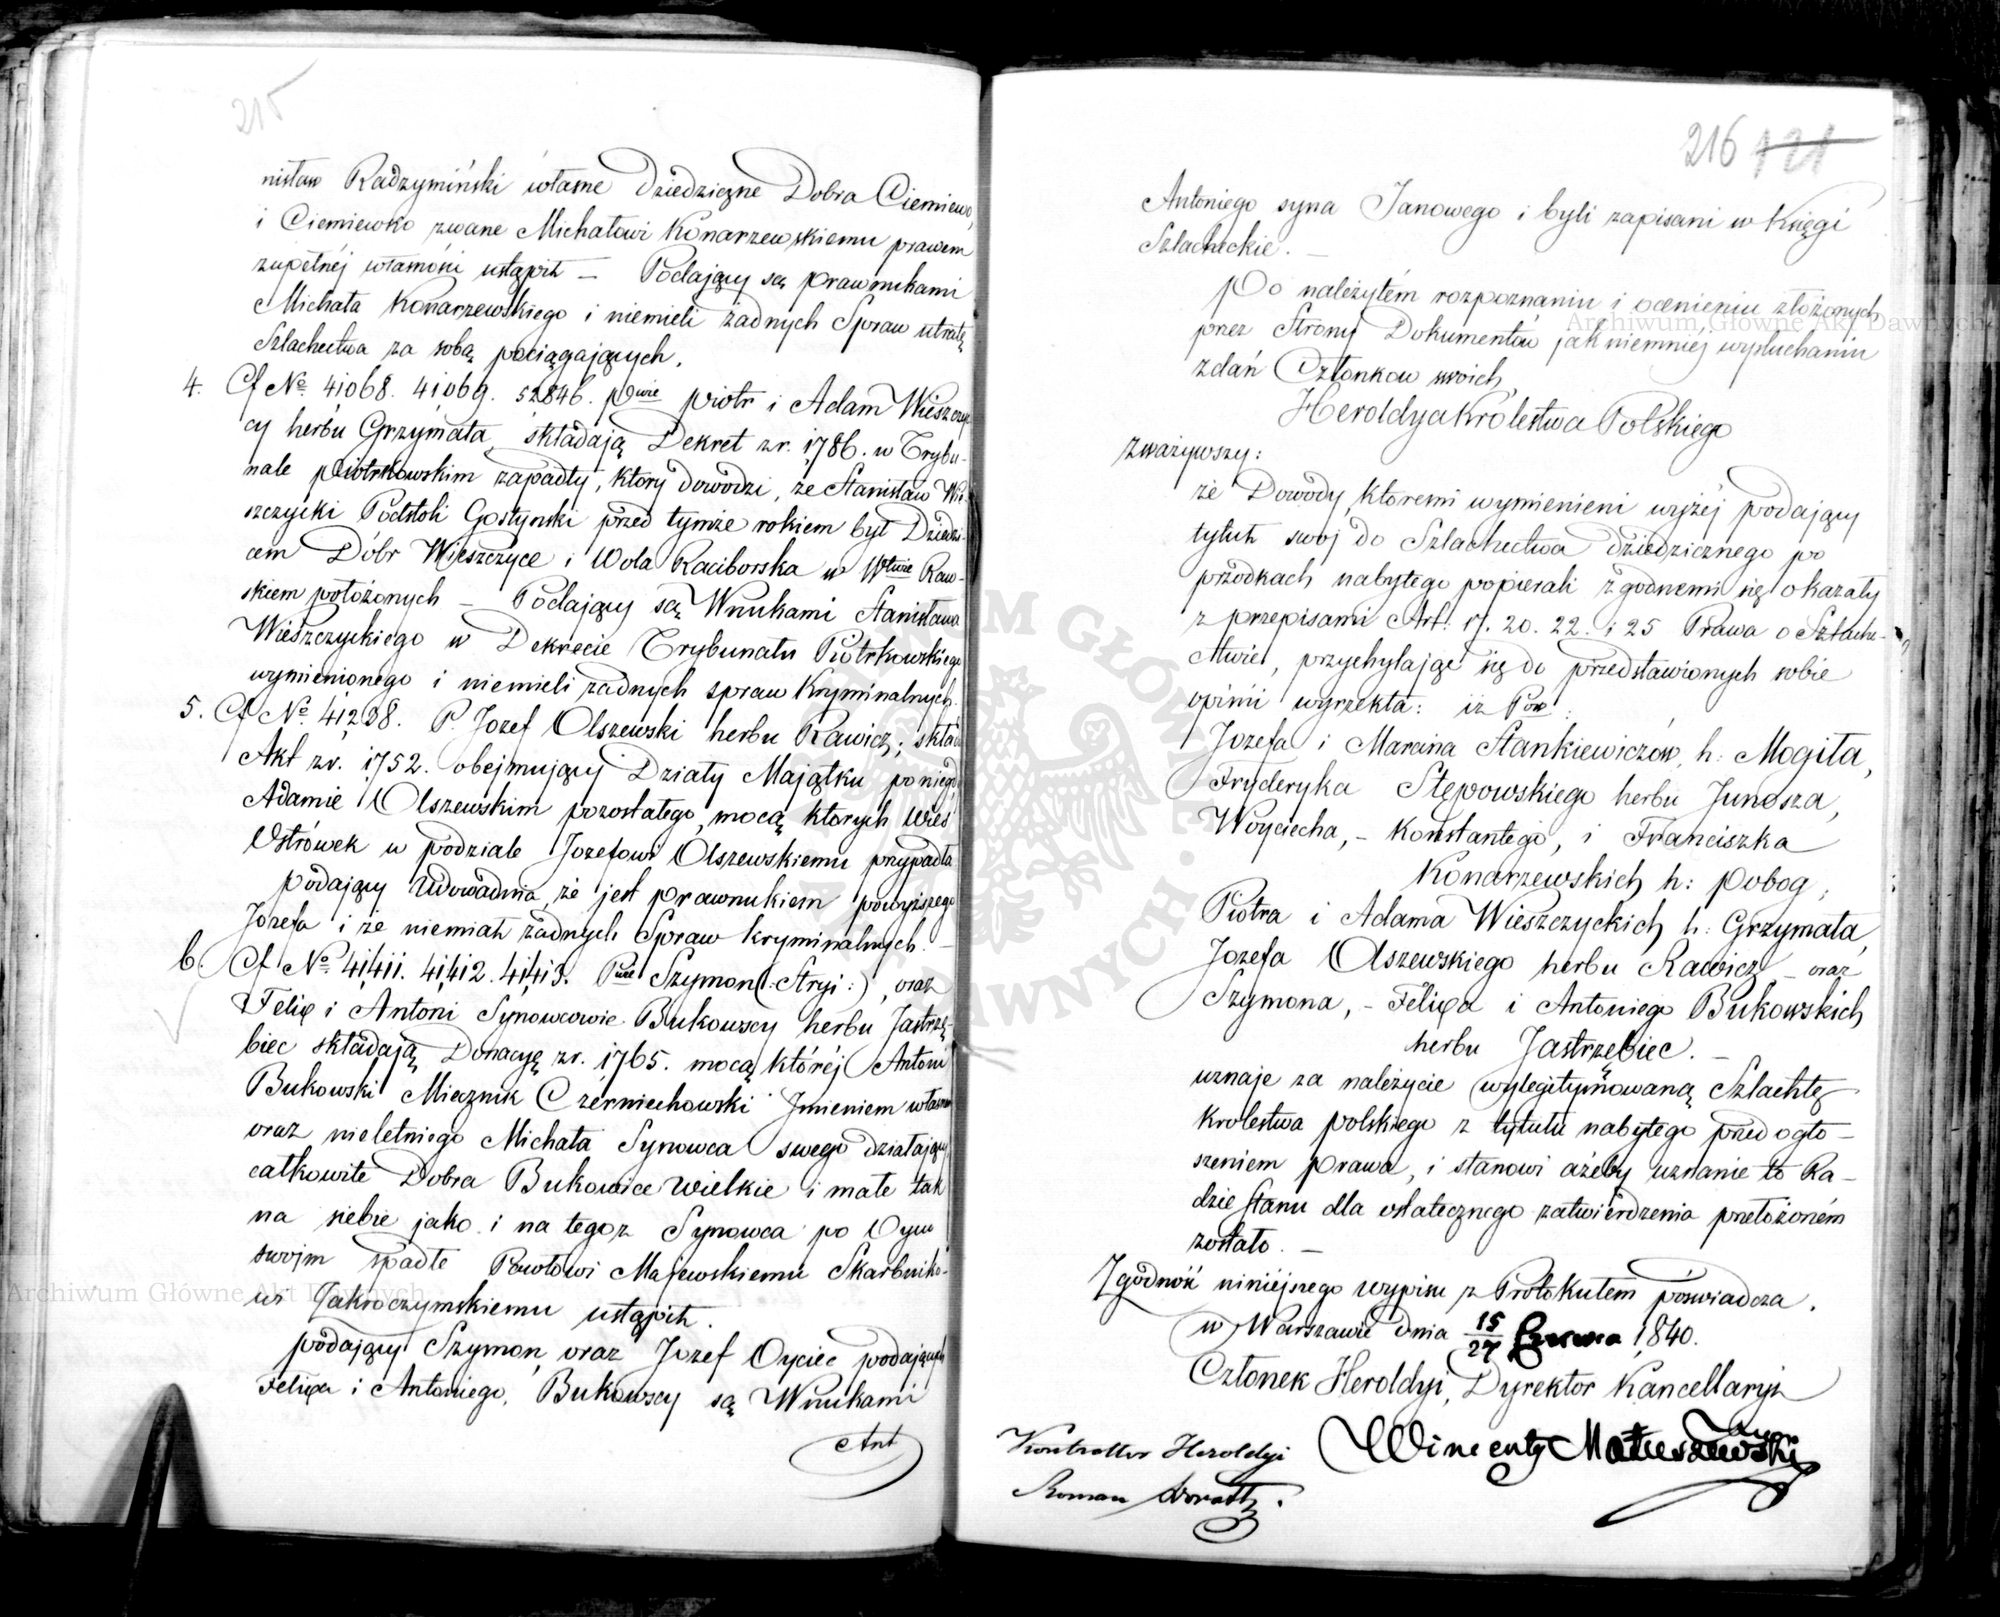 215
nisław Radzymiński własne Dziedziczne Dobra Ciemiewo,
i Ciemiewko zwane Michałowi Konarzewskiemu prawem
zupełnéj własności ustąpił — Podający są prawnukami
Michała Konarzewskiego i niemieli żadnych Spraw utratę
Szlachectwa za sobą pociągających.
4. Cf No. 41068. 41069. 52846. pwie piotr i Adam Wieszczyc
cy herbu Grzymała, składają Dekret z r. 1786. w Trybu-
nale piotrkowskim zapadły, który dowodzi, że Stanisław Wie-
szczycki Podstoli Gostynski przed tymże rokiem był Dziedzi-
cem Dóbr Wieszczyce i Wola Raciborska w Wtwie Raw-
skiem położonych — Podający są Wnukami Stanisława
Wieszczyckiego w Dekrecie Trybunału Piotrkowskiego
wymienionego i niemieli żadnych spraw kryminalnych.
5. Cf No. 41238. P. Jozef Olszewski herbu Rawicz; składa
Akt z r. 1752. obejmujący Działy Majątku po niegd
Adamie Olszewskim pozostałego, mocą których wieś
Ostrówek w podziale Jozefowi Olszewskiemu przypadła
podający Udowadnia, że jest prawnukiem powyższego
Jozefa i że niemiał żadnych Spraw kryminalnych. —
6. Cf No. 41411. 41412. 41413. Pwie Szymon (: Stryi :), oraz
Felix i Antoni Synowcowie Bukowscy herbu Jastrzę-
biec składają Donacyę z r. 1765. mocą któréj Antoni
Bukowski Miecznik Czerniechowski Imieniem własnem
oraz nieletniego Michała Synowca swego działający
całkowite Dobra Bukowice wielkie i małe tak
na siebie jako i na tegoz Synowca po Oycu
swojm spadłe Pawłowi Majewskiemu Skarbniko-
wi Zakroczymskiemu ustąpił.
podający Szymon, oraz Jozef Oyciec podających
Felixa i Antoniego, Bukowscy są Wnukami
Ant
216 121
Antoniego syna Janowego i byli zapisani w Księgi
Szlacheckie. —
Po należytém rozpoznaniu i ocenieniu złożonych
przez Strony Dokumentów jak niemniéj wysłuchaniu
zdań Członkow swoich,
Heroldya Królestwa Polskiego
zważywszy:
że Dowody, któremi wymienieni wyżéj podający
tytuł swoj do Szlachectwa dziedzicznego po
przodkach nabytego popierali zgodnemi się okazały
z przepisami Art: 17. 20. 22. i 25 Prawa o Szlache-
ctwie, przychylając się do przedstawionych sobie
opinii wyrzekła: iż Pow:
Jozefa i Marcina Stankiewiczów, h: Mogiła,
Fryderyka Stępowskiego herbu Junosza,
Woyciecha, - Konstantego, i Franciszka
Konarzewskich h: pobog,
Piotra i Adama Wieszczyckich h: Grzymała,
Jozefa Olszewskiego herbu Rawicz — oraz
Szymona, - Felixa i Antoniego Bukowskich
herbu Jastrzębiec. —
uznaje za należycie wylegitymowaną Szlachtę
krolestwa polskiego z tytułu nabytego przed ogło-
szeniem prawa, i stanowi ażeby uznanie to Ra-
dzie Stanu dla ostatecznego zatwierdzenia przełożoném
zostało. —
Zgodność niniéjszego wypisu z Protokułem poświadcza.
w Warszawie dnia 15/27 Czerwca 1840.
Członek Heroldyi, Dyrektor Kancellaryi
Wincenty Matuszewski
Kontroller Heroldyi
Roman
Archiwum Główne Akt Dawnych
Archiwum Główne Akt Dawnych
ARCHIWUM GŁÓWNE AKT DAWNYCH